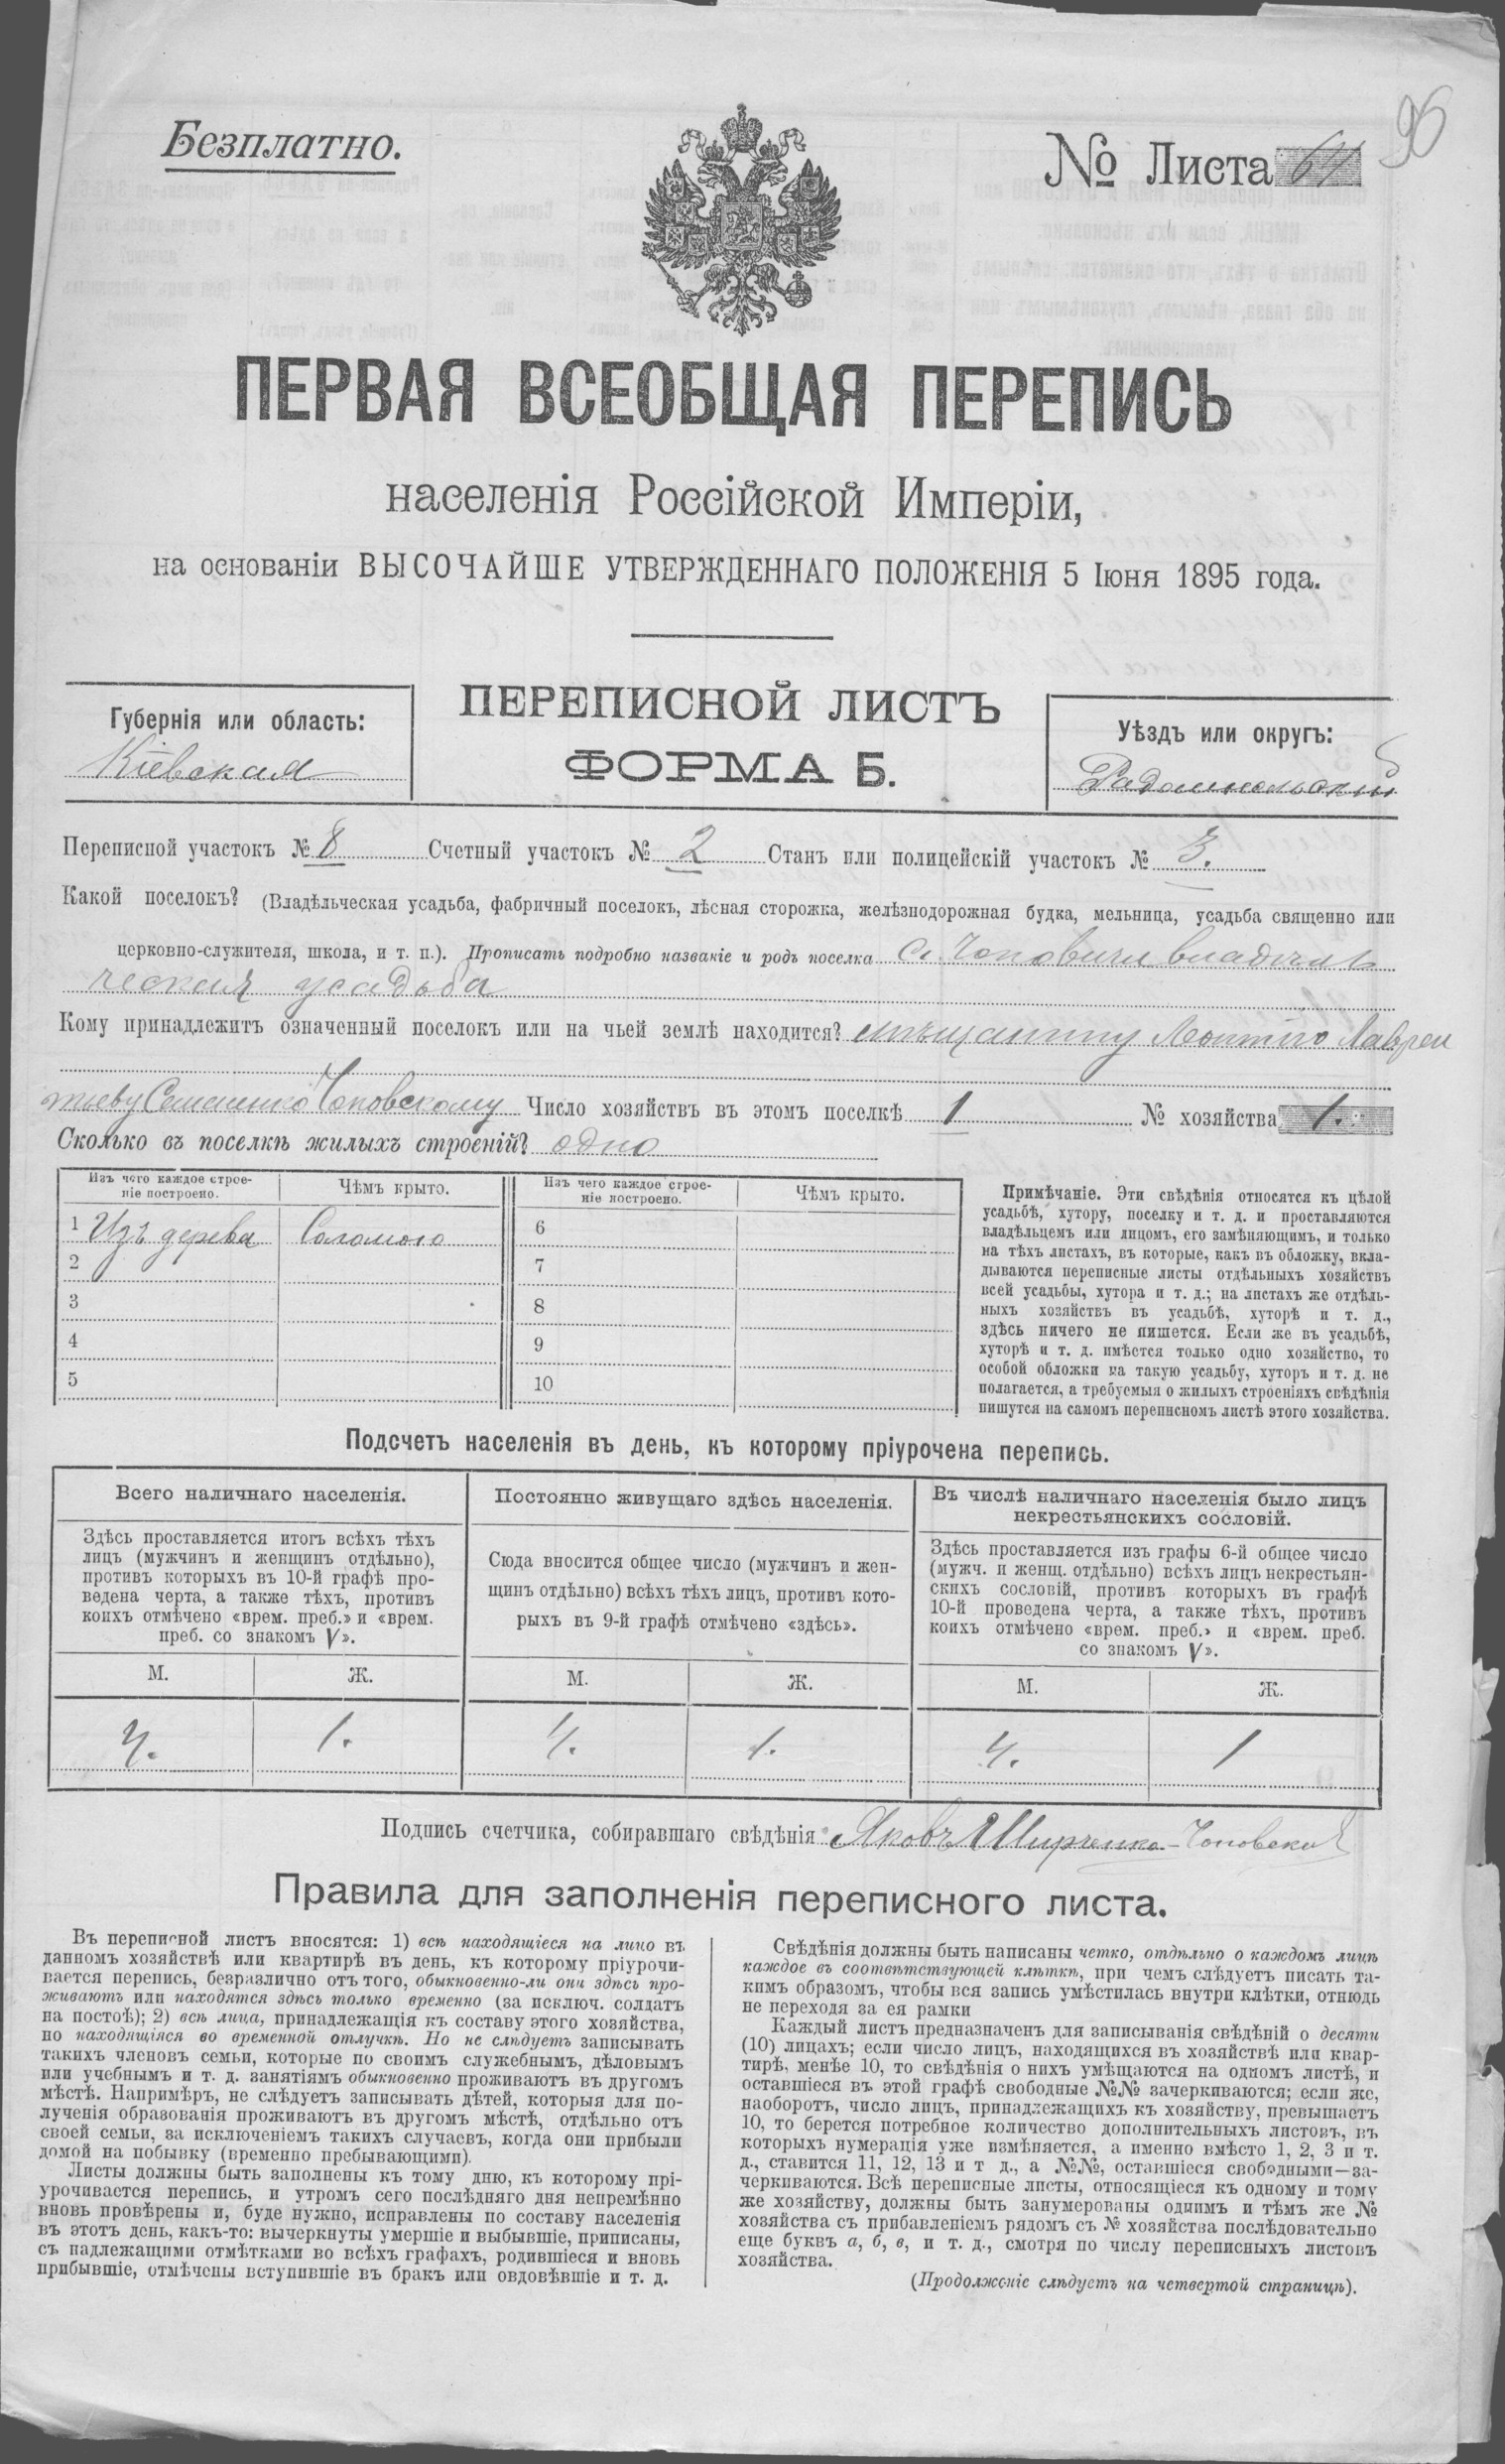 Безплатно.
№ Листа 64
96
ПЕРВАЯ ВСЕОБЩАЯ ПЕРЕПИСЬ
населенія Россійской Имперіи,
на основаніи ВЫСОЧАЙШЕ УТВЕРЖДЕННАГО ПОЛОЖЕНІЯ 5 Іюня 1895 года.
Губернія или область:
Кіевская
ПЕРЕПИСНОЙ ЛИСТЪ
ФОРМА Б.
Уѣздъ или округъ:
Радомысльскій
Переписной участокъ № 8 Счетный участокъ № 2 Станъ или полицейскій участокъ № 3.
Какой поселокъ? (Владѣльческая усадьба, фабричный поселокъ, лѣсная сторожка, желѣзнодорожная будка, мельница, усадьба священно или
церковно-служителя, школа, и т. п.). Прописать подробно названіе и родъ поселка с. Чоповичи владѣль
ческая усадьба
Кому принадлежитъ означенный поселокъ или на чьей землѣ находится? мѣщанину Леонтію Лаврен
тьеву Семененко Чоповскому Число хозяйствъ въ этомъ поселкѣ 1 № хозяйства 1.
Сколько въ поселкѣ жилыхъ строеній? одно
Изъ чего каждое строе-
ніе построено.
Чѣмъ крыто.
Изъ чего каждое строе-
ніе построено.
Чѣмъ крыто.
1 Изъ дерева Соломою 6
2 7
3 8
4 9
5 10
Примѣчаніе. Эти свѣдѣнія относятся къ цѣлой
усадьбѣ, хутору, поселку и т. д. и проставляются
владѣльцемъ или лицомъ, его замѣняющимъ, и только
на тѣхъ листахъ, въ которые, какъ въ обложку, вкла-
дываются переписные листы отдѣльныхъ хозяйствъ
всей усадьбы, хутора и т. д.; на листахъ же отдѣль-
ныхъ хозяйствъ въ усадьбѣ, хуторѣ и т. д.,
здѣсь ничего не пишется. Если же въ усадьбѣ,
хуторѣ и т. д. имѣется только одно хозяйство, то
особой обложки на такую усадьбу, хуторъ и т. д. не
полагается, а требуемыя о жилыхъ строеніяхъ свѣдѣнія
пишутся на самомъ переписномъ листѣ этого хозяйства.
Подсчетъ населенія въ день, къ которому пріурочена перепись.
Всего наличнаго населенія.
Здѣсь проставляется итогъ всѣхъ тѣхъ
лицъ (мужчинъ и женщинъ отдѣльно),
противъ которыхъ въ 10-й графѣ про-
ведена черта, а также тѣхъ, противъ
коихъ отмѣчено «врем. преб.» и «врем.
преб. со знакомъ V».
Постоянно живущаго здѣсь населенія.
Сюда вносится общее число (мужчинъ и жен-
щинъ отдѣльно) всѣхъ тѣхъ лицъ, противъ кото-
рыхъ въ 9-й графѣ отмѣчено «здѣсь».
Въ числѣ наличнаго населенія было лицъ
некрестьянскихъ сословій.
Здѣсь проставляется изъ графы 6-й общее число
(мужч. и женщ. отдѣльно) всѣхъ лицъ некрестьян-
скихъ сословій, противъ которыхъ въ графѣ
10-й проведена черта, а также тѣхъ, противъ
коихъ отмѣчено «врем. преб.» и «врем. преб.
со знакомъ V».
М. Ж. М. Ж. М. Ж.
4. 1. 4. 1. 4. 1
Подпись счетчика, собиравшаго свѣдѣнія: Яковъ Ширченко-Чоповскій
Правила для заполненія переписного листа.
Въ переписной листъ вносятся: 1) всѣ находящіеся на лицо въ
данномъ хозяйствѣ или квартирѣ въ день, къ которому пріурочи-
вается перепись, безразлично отъ того, обыкновенно-ли они здѣсь про-
живаютъ или находятся здѣсь только временно (за исключ. солдатъ
на постоѣ); 2) всѣ лица, принадлежащія къ составу этого хозяйства,
но находящіяся во временной отлучкѣ. Но не слѣдуетъ записывать
такихъ членовъ семьи, которые по своимъ служебнымъ, дѣловымъ
или учебнымъ и т. д. занятіямъ обыкновенно проживаютъ въ другомъ
мѣстѣ. Напримѣръ, не слѣдуетъ записывать дѣтей, которыя для по-
лученія образованія проживаютъ въ другомъ мѣстѣ, отдѣльно отъ
своей семьи, за исключеніемъ такихъ случаевъ, когда они прибыли
домой на побывку (временно пребывающими).
Листы должны быть заполнены къ тому дню, къ которому прі-
урочивается перепись, и утромъ сего послѣдняго дня непремѣнно
вновь провѣрены и, буде нужно, исправлены по составу населенія
въ этотъ день, какъ-то: вычеркнуты умершіе и выбывшіе, приписаны,
съ надлежащими отмѣтками во всѣхъ графахъ, родившіеся и вновь
прибывшіе, отмѣчены вступившіе въ бракъ или овдовѣвшіе и т. д.
Свѣдѣнія должны быть написаны четко, отдѣльно о каждомъ лицѣ
каждое въ соотвѣтствующей клѣткѣ, при чемъ слѣдуетъ писать та-
кимъ образомъ, чтобы вся запись умѣстилась внутри клѣтки, отнюдь
не переходя за ея рамки
Каждый листъ предназначенъ для записыванія свѣдѣній о десяти
(10) лицахъ; если число лицъ, находящихся въ хозяйствѣ или квар-
тирѣ, менѣе 10, то свѣдѣнія о нихъ умѣщаются на одномъ листѣ, и
оставшіеся въ этой графѣ свободные №№ зачеркиваются; если же,
наоборотъ, число лицъ, принадлежащихъ къ хозяйству, превышаетъ
10, то берется потребное количество дополнительныхъ листовъ, въ
которыхъ нумерація уже измѣняется, а именно вмѣсто 1, 2, 3 и т.
д., ставится 11, 12, 13 и т д., а №№, оставшіеся свободными—за-
черкиваются. Всѣ переписные листы, относящіеся къ одному и тому
же хозяйству, должны быть занумерованы однимъ и тѣмъ же №
хозяйства съ прибавленіемъ рядомъ съ № хозяйства послѣдовательно
еще буквъ а, б, в, и т. д., смотря по числу переписныхъ листовъ
хозяйства.
(Продолженіе слѣдуетъ на четвертой страницѣ).